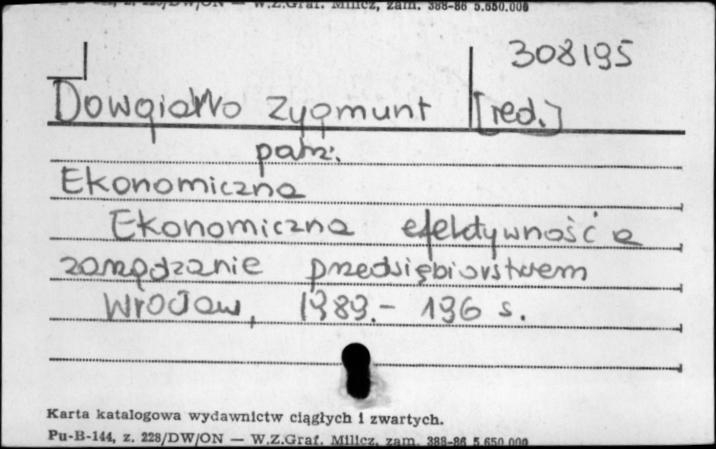 z. 228/DW/ON — W.Z.Graf. Milicz, zam. 388-86 5.650.000
308195
Dowgiałło Zygmunt [red.]
patrz:
Ekonomiczna
Ekonomiczna efektywność a
zarządzanie przedsiębiorstwem
Wrocław, 1989.- 196 s.
Karta katalogowa wydawnictw ciągłych i zwartych.
Pu-B-144, z. 228/DW/ON — W.Z.Graf. Milicz, zam. 388-86 5.650.000